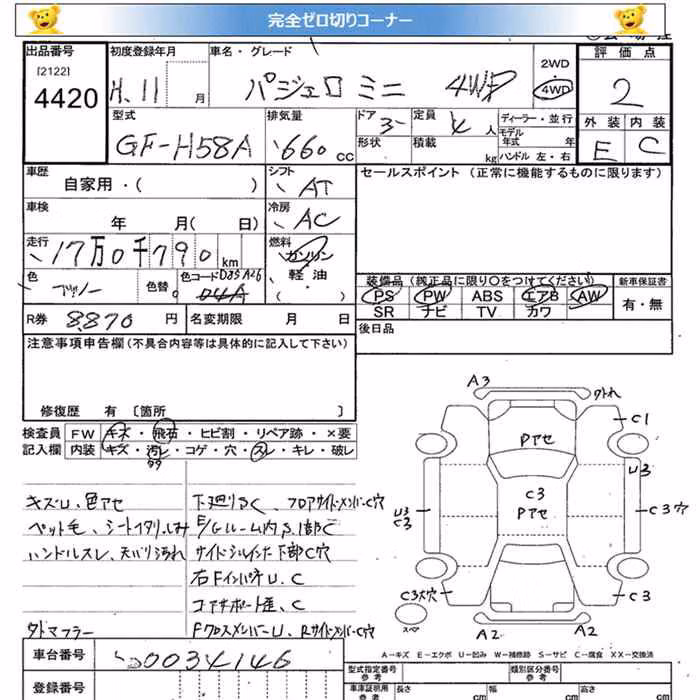 完全ゼロ切りコーナー
出品番号 初度登録年月 車名・グレード 2WD 評価点
[2122] H.11 月 パジェロ ミニ 4WD 4WD 2
4420 型式 排気量 ドア 3 定員 4 人 ディーラー・並行 外装 内装
GF-H58A 660 CC 形状 積載 kg モデル年式 年 ハンドル 左・右 E C
車歴 シフト セールスポイント (正常に機能するものに限ります)
自家用・( ) AT
車検 冷房
年 月( 日) AC
走行 燃料
17万0千790 km ガソリン
色 色替 色コード 軽油
( )
装備品 (純正品に限り○をつけてください) 新車保証書
PS PW ABS エアB AW 有・無
SR ナビ TV カワ
R券 8,870 円 名変期限 月 日 後日品
注意事項申告欄 (不具合内容等は具体的に記入して下さい)
修復歴 有 〔箇所 〕
検査員 FW キズ・飛石・ヒビ割・リペア跡・×要
記入欄 内装 キズ・汚レ・コゲ・穴・スレ・キレ・破レ
キズU、色アセ 下廻りSC、フロアサイドメンバーC穴
ペット毛、シートイタリ、しみ E/Gルーム内S、1部C
ハンドルスレ、天バリ汚れ サイドシルインナー下部C穴
右FインパネU、C
コアサポート歪、C
タトマフラー FクロスメンバーU、RサイドメンバーC穴
A3 外れ
C1
Pアセ
U3
U3 C3 C3穴
C3 Pアセ
C3大穴 C3
スペア
A2 A2
A-キズ E-エクボ U-凹み W-補修跡 S-サビ C-腐食 XX-交換済
車台番号 0034146
登録番号
型式指定番号 参考 類別区分番号 参考
車庫証明用 参考 長さ cm 幅 cm 高さ cm